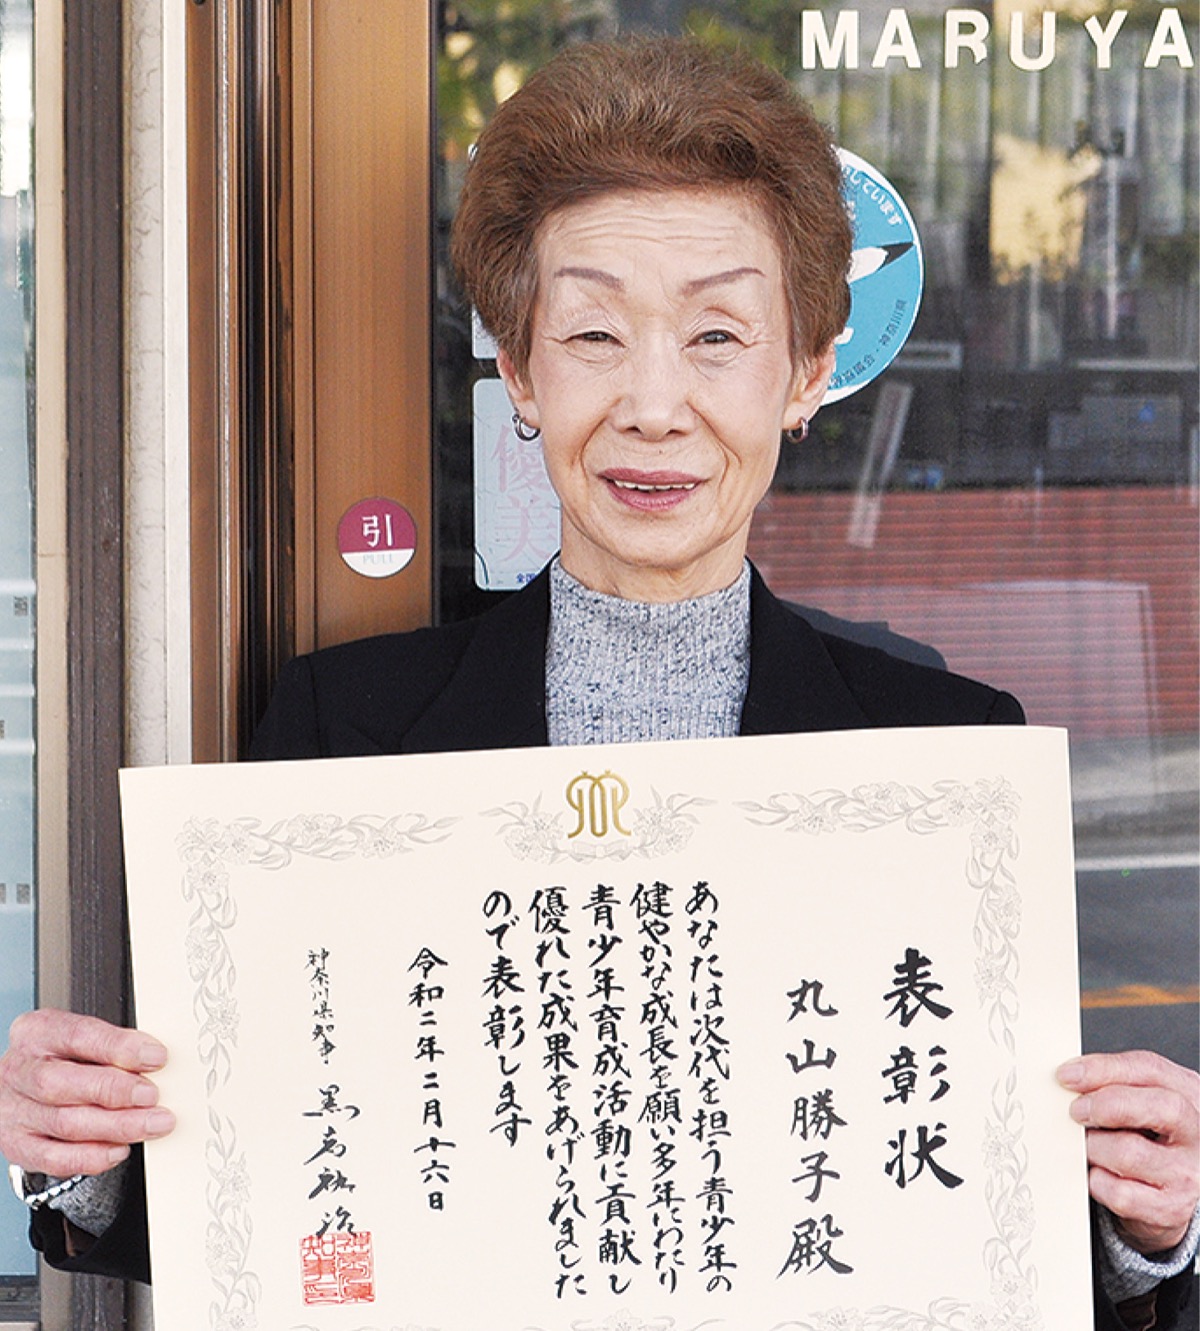 MARUYA
しています
引
PULL
優美
全国
表彰状
丸山勝子殿
あなたは次代を担う青少年の
健やかな成長を願い多年にわたり
青少年育成活動に貢献し
優れた成果をあげられました
ので表彰します
令和二年二月十六日
神奈川県知事 黒岩祐治